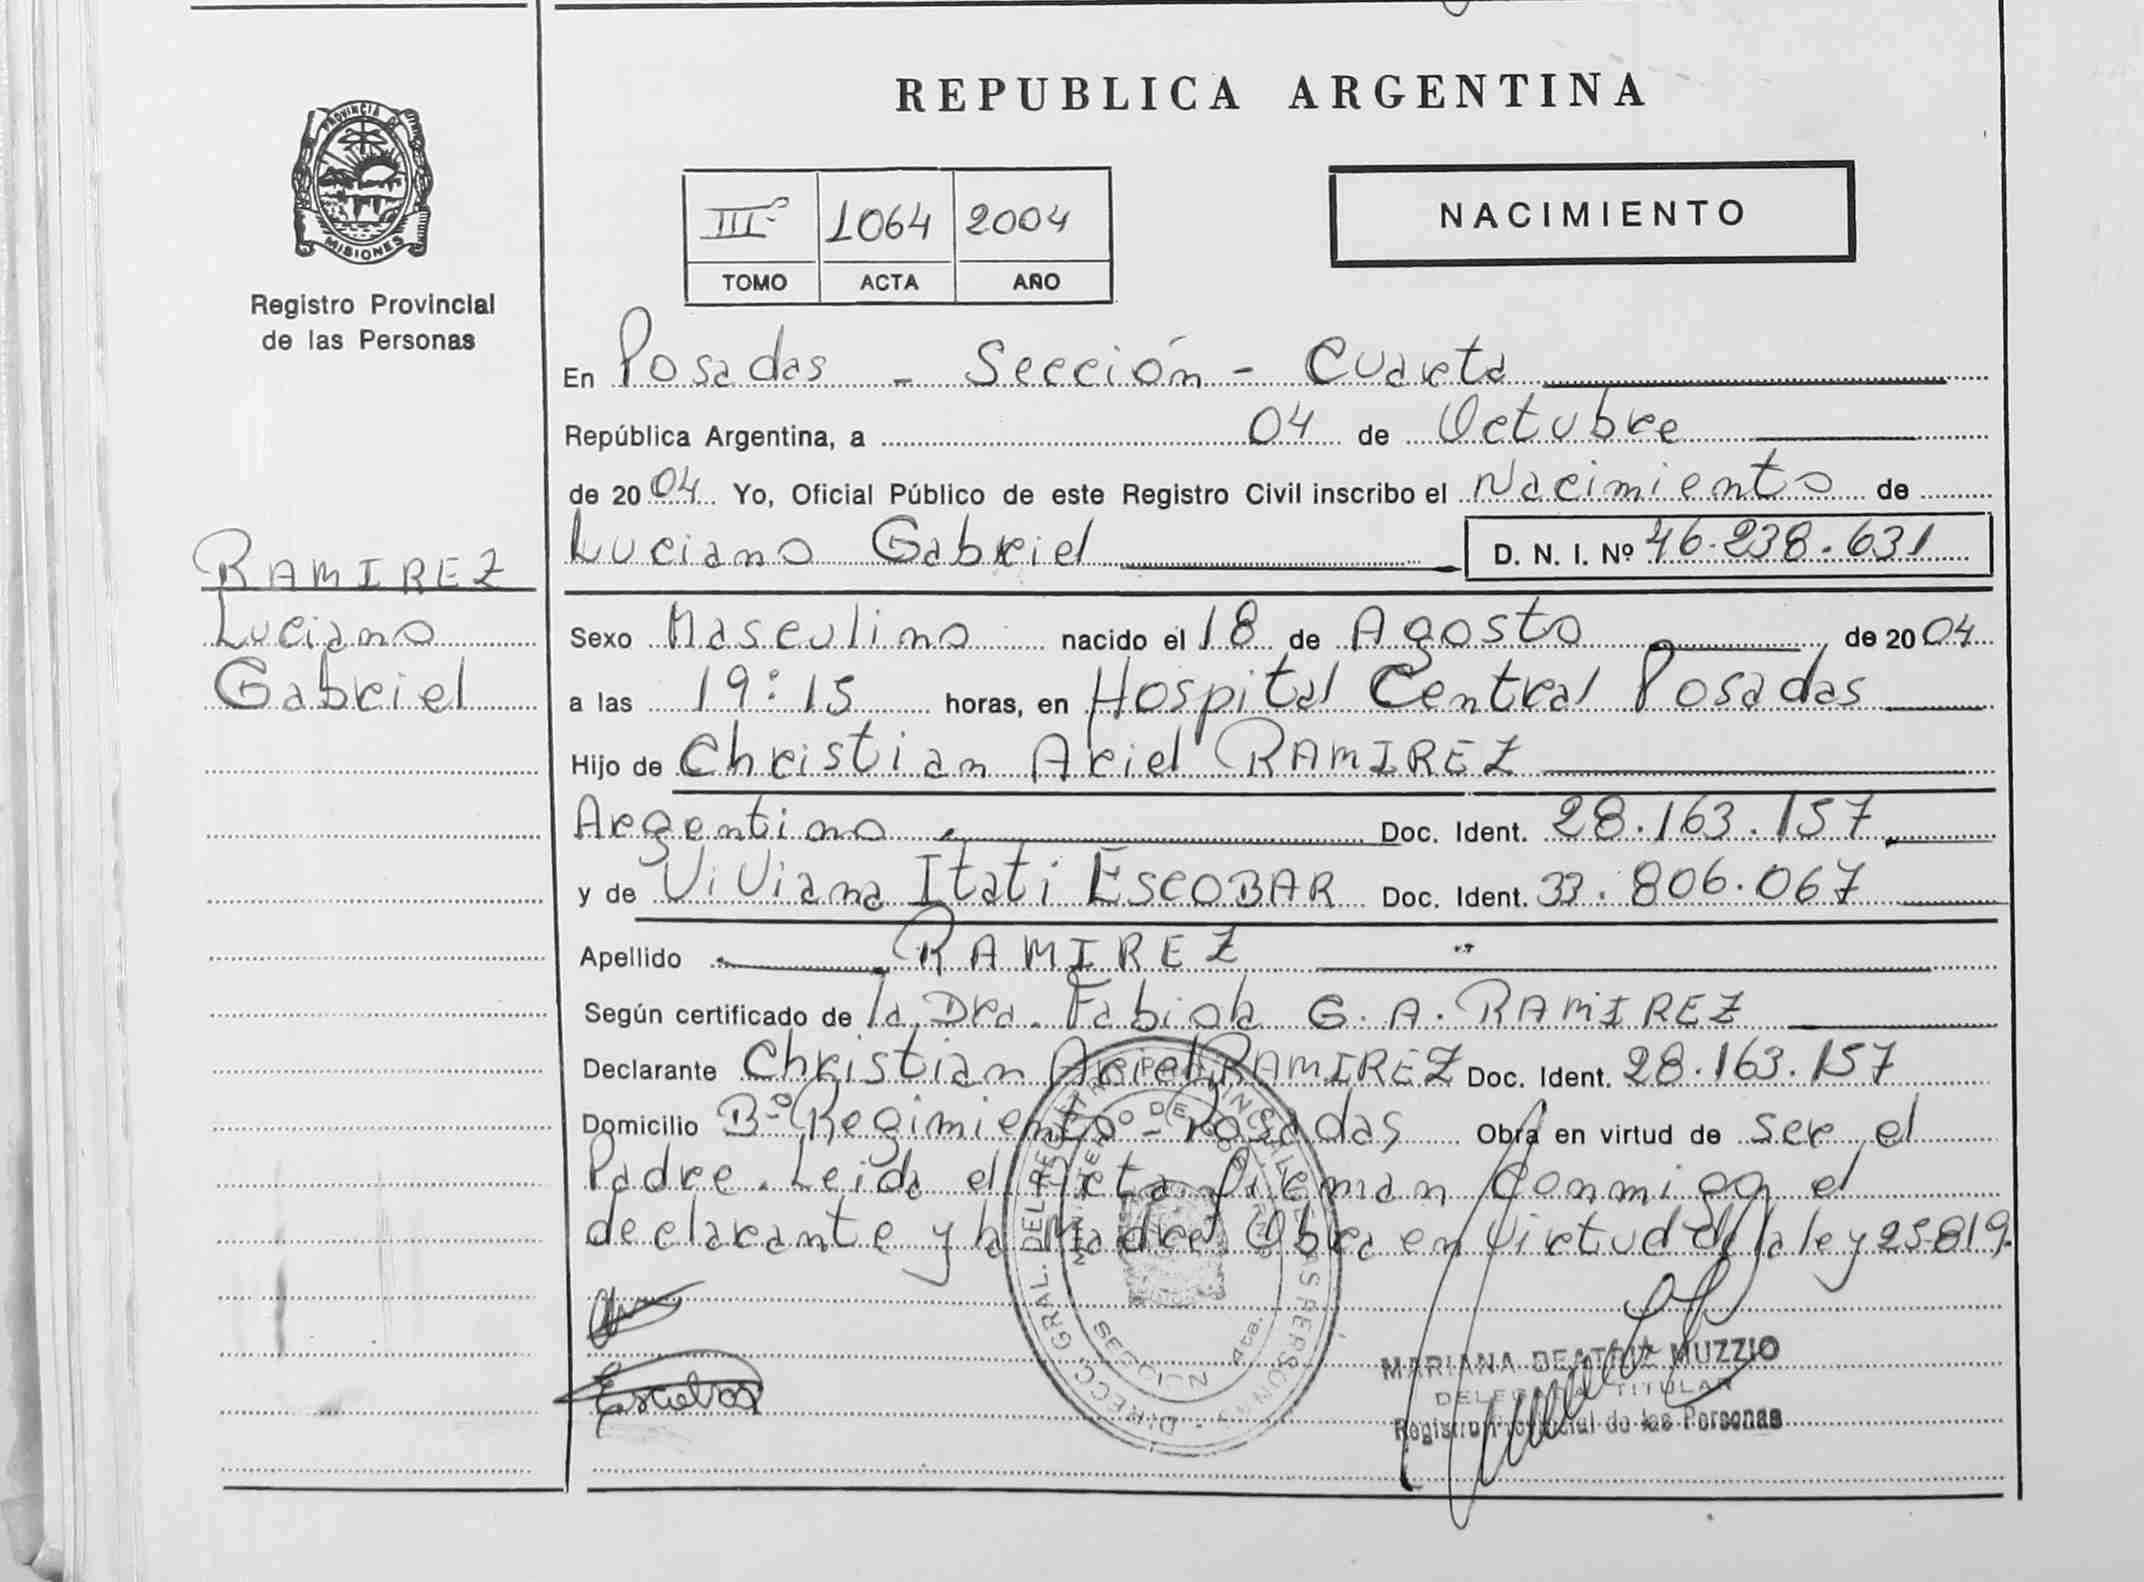 REPUBLICA ARGENTINA
PROVINCIA DE
MISIONES
Registro Provincial
de las Personas
IIIº 1064 2004
TOMO ACTA AÑO
NACIMIENTO
En Posadas - Sección - Cuarta
República Argentina, a 04 de Octubre
de 2004 Yo, Oficial Público de este Registro Civil inscribo el Nacimiento de
Luciano Gabriel D. N. I. Nº 46.238.631
RAMIREZ
Luciano
Gabriel
Sexo Masculino nacido el 18 de Agosto de 2004
a las 19:15 horas, en Hospital Central Posadas
Hijo de Christian Ariel RAMIREZ
Argentino Doc. Ident. 28.163.157
y de Viviana Itati ESCOBAR Doc. Ident. 33.806.067
Apellido RAMIREZ
Según certificado de la Dra. Fabiola G. A. RAMIREZ
Declarante Christian Ariel RAMIREZ Doc. Ident. 28.163.157
Domicilio Bº Regimiento - Posadas Obra en virtud de ser el
Padre. Leida el Acta firman conmigo el
declarante y la Madre Obra en virtud de la ley 25819.
Escobar
MARIANA BEATRIZ MUZZIO
DELEGADA TITULAR
Registro Provincial de las Personas
DIRECC. GRAL. DEL REGISTRO PROVINCIAL DE LAS PERSONAS
MINISTERIO DE GOBIERNO
MISIONES
4ta.